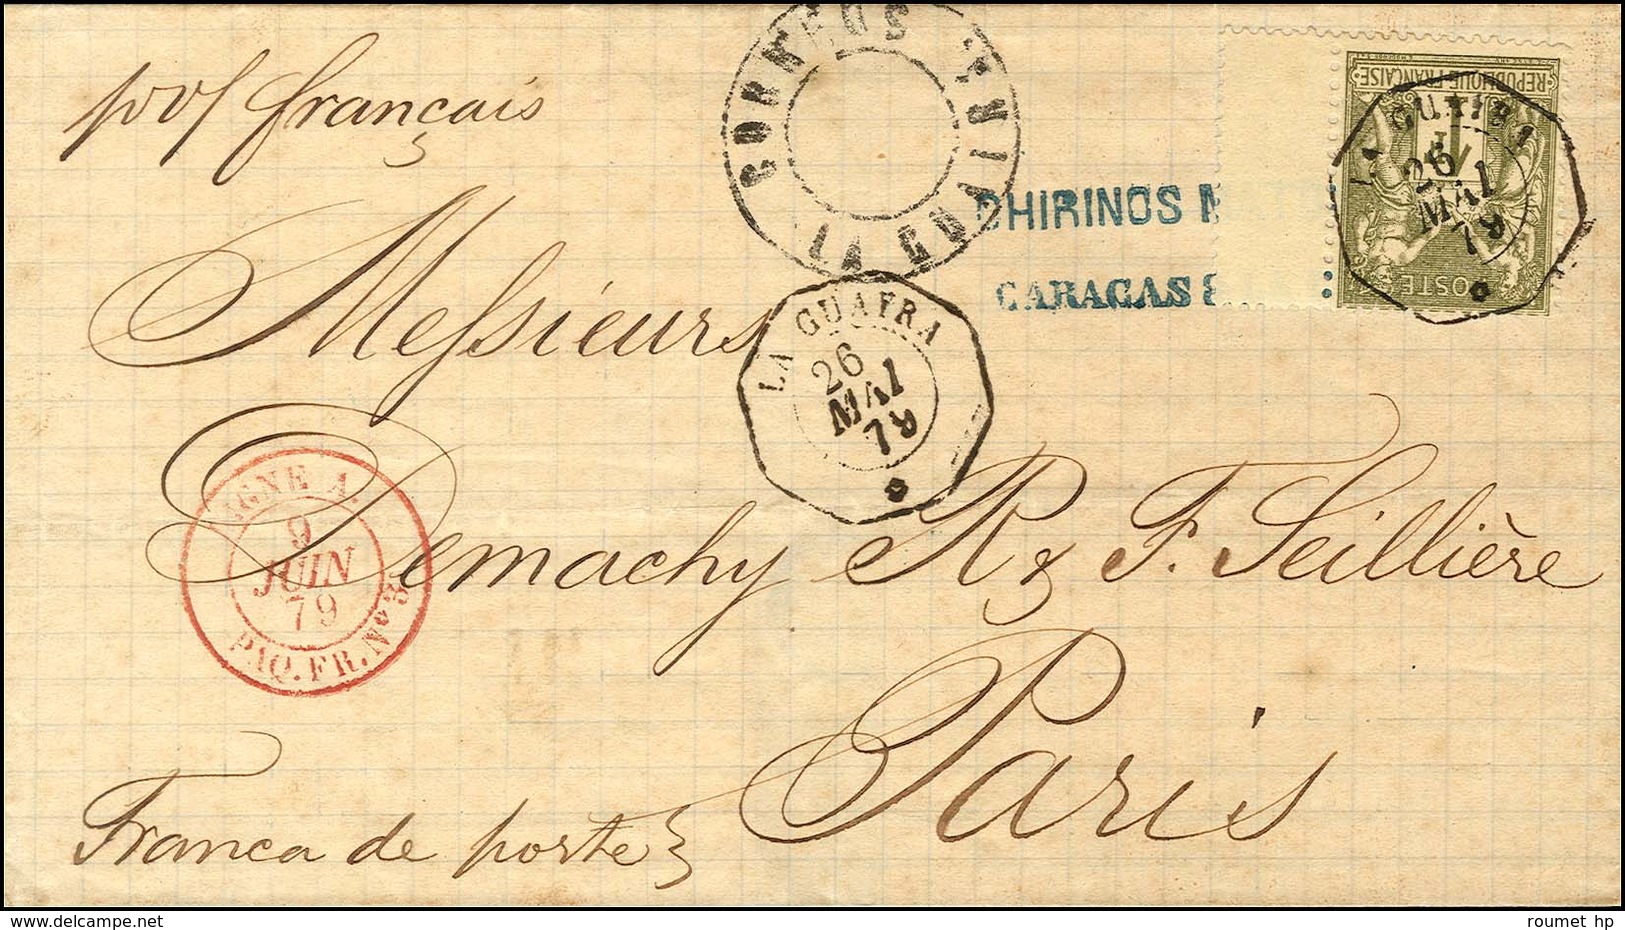 pr vp français
CORREOS
CHIRINOS M
CARACAS 8
REPUBLIQUE FRANÇAISE
POSTE
LA GUAIRA
26
MAI
79
Messieurs
LA GUAIRA
26
MAI
79
LIGNE A.
9
JUIN
79
PAQ. FR. No 3
Demachy R & F. Seillière
Paris
Franca de porte
delcampe.net
roumet hp